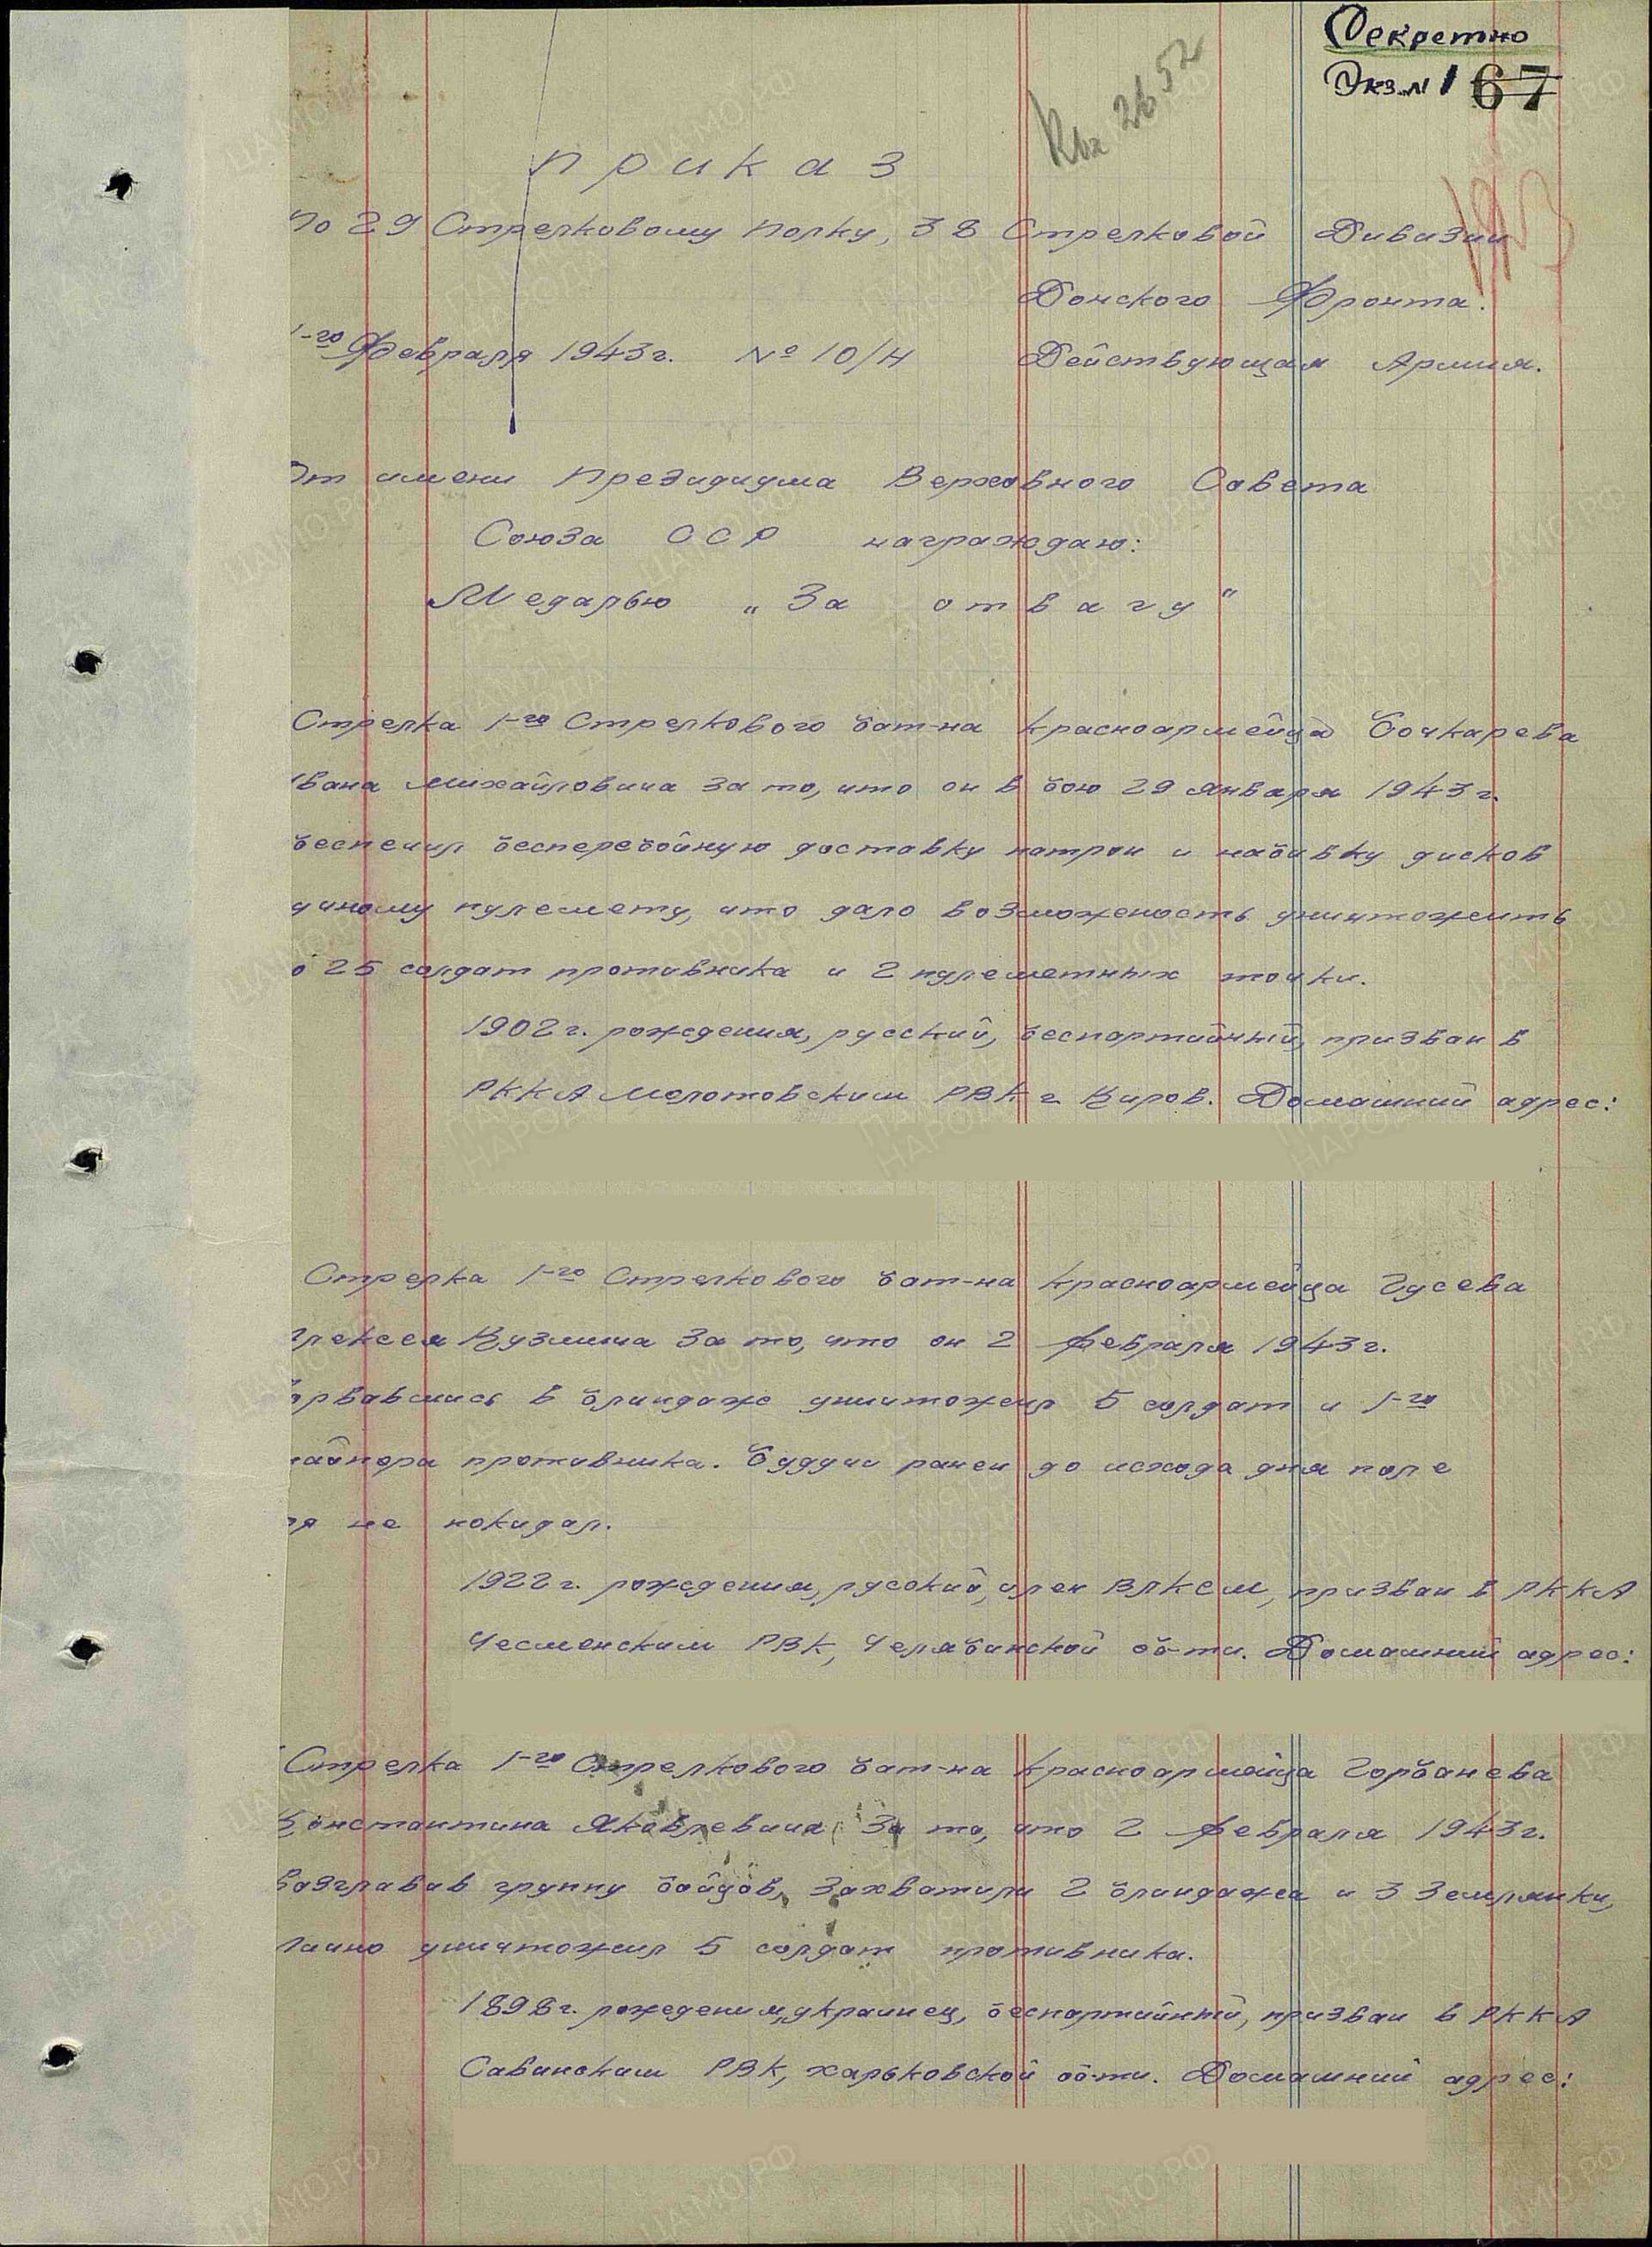 Секретно
Экз. № 1 67
Вх 2652
Приказ
По 29 Стрелковому полку, 38 Стрелковой Дивизии
Донского Фронта.
1-го Февраля 1943г. № 10/Н Действующая Армия.
От имени Президиума Верховного Совета
Союза ССР награждаю:
Медалью „За отвагу"
Стрелка 1-го Стрелкового бат-на Красноармейца Бочкарева
Ивана Михайловича За то, что он в бою 29 января 1943г.
беспечил бесперебойную доставку патрон и набивку дисков
учному пулемету, что дало возможность уничтожить
о 25 солдат противника и 2 пулеметных точки.
1902г. рождения, русский, беспартийный, призван в
РККА Молотовским РВК г. Киров. Домашний адрес:
Стрелка 1-го Стрелкового бат-на Красноармейца Гусева
Алексея Кузмича За то, что он 2 февраля 1943г.
орвавшись в блиндаж уничтожил 5 солдат и 1-го
найпера противника. Буддучи ранен до исхода дня поле
оя не покидал.
1922г. рождения, русский, член ВЛКСМ, призван в РККА
Чесменским РВК, Челябинской об-ти. Домашний адрес:
Стрелка 1-го Стрелкового бат-на Красноармейца Горбанева
Константина Яковлевича За то, что 2 февраля 1943г.
Возглавив группу бойцов, захватили 2 блиндажа и 3 Землянки,
Лично уничтожил 5 солдат противника.
1898г. рождения, украинец, беспартийный, призван в РККА
Савинским РВК, Харьковской об-ти. Домашний адрес: